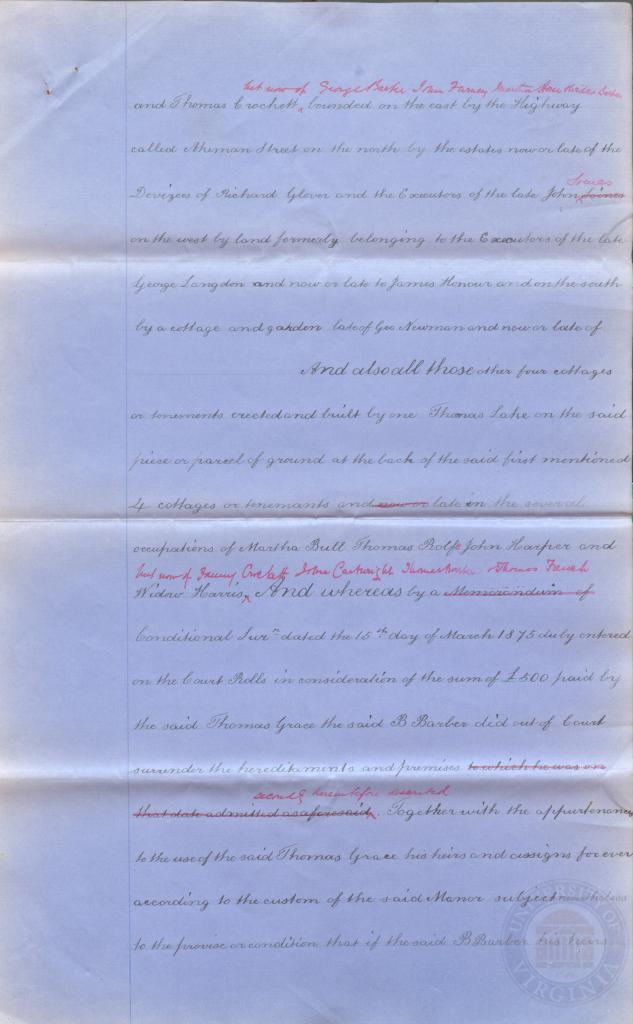 but now of George Barker John
and Thomas Crockett, bounded on the east by the Highway
called Akeman Street on the north by the estates now or late of the
Devizees of Richard Glover and the Executors of the late John Soines
on the west by land formerly belonging to the Executors of the late
George Langdon and now or late to James Honour and on the south
by a cottage and garden late of Geo Newman and now or late of
And also all those other four cottages
or tenements erected and built by one Thomas Lake on the said
piece or parcel of ground at the back of the said first mentioned
4 cottages or tenemants and now or late in the several
occupations of Martha Bull Thomas Rolfe John Harper and
but now of Fanny Crockett John Cartwright Thomas French
Widow Harris, And whereas by a Memorandum of
Conditional Surr dated the 15th day of March 1875 duly entered
on the Court Rolls in consideration of the sum of £500 paid by
the said Thomas Grace the said B Barber did out of Court
surrender the hereditaments and premises to which he was on
secondly hereinbefore described
that date admitted as aforesaid. Together with the appurtenances
to the use of the said Thomas Grace his heirs and assigns for ever
according to the custom of the said Manor subject
to the proviso or condition that if the said B Barber his heirs
UNIVERSITY OF VIRGINIA